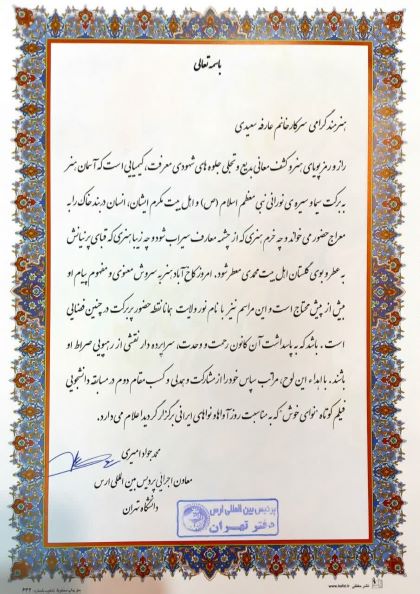 باسمه تعالی
هنرمند گرامی سرکار خانم عارفه سعیدی
راز و رمز پویای هنر و کشف معانی بدیع و تجلی جلوه های شهودی معرفت، کیمیایی است که آسمان هنر
به برکت سیما و سیره ی نورانی نبی معظم اسلام (ص) و اهل بیت مکرم ایشان، انسان در بند خاک را به
معراج حضور می خواند و چه خرم هنری که از چشمه معارف سیراب شود و چه زیبا هنری که قبای پرنیانش
به عطر و بوی گلستان اهل بیت محمدی معطر شود. امروز کاخ آباد هنر به سروش معنوی و مفهوم پیام او
بیش از پیش محتاج است و این مراسم نیز با نام نور ولایت همانا نقطه حضور پربرکت در چنین فضایی
است . باشد که به پاسداشت آن کانون رحمت و وحدت، سراپرده دار نقشی از رهپویی صراط او
باشند. با اهداء این لوح، مراتب سپاس خود را از مشارکت و همدلی و کسب مقام دوم در مسابقه دانشجویی
فیلم کوتاه "نوای خوش" که به مناسبت روز آواها و نواهای ایرانی برگزار گردید اعلام می دارد.
محمد جواد امیری
معاون اجرائی پردیس بین المللی ارس
دانشگاه تهران
پردیس بین المللی ارس
دفتر تهران